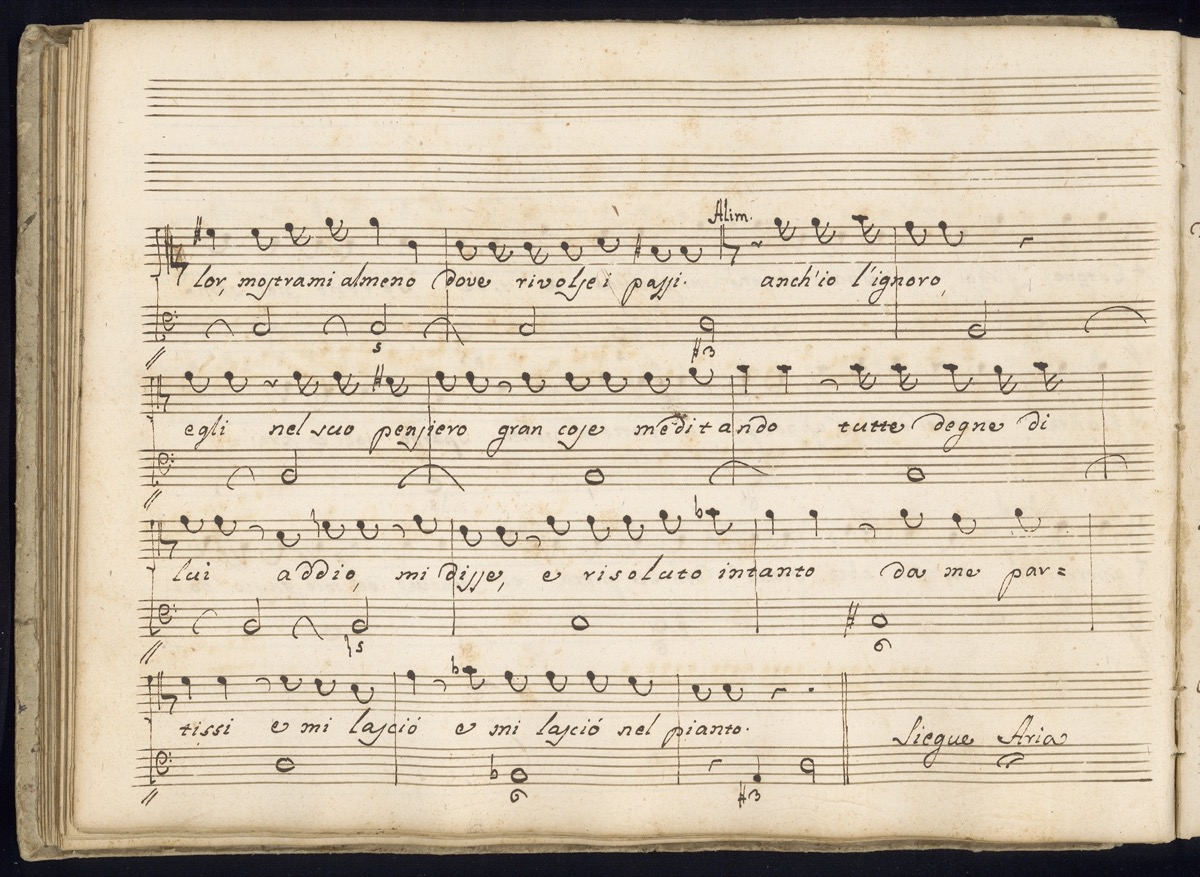 Alim.
lor, mostrami almeno dove rivolse i passi. anch'io l'ignoro,
5 #3
egli nel suo pensiero gran cose meditando tutte degne di
lui addio, mi disse, e risoluto intanto da me par=
♮5 6
tissi e mi lasció e mi lasció nel pianto.
Siegue Aria
6 #3